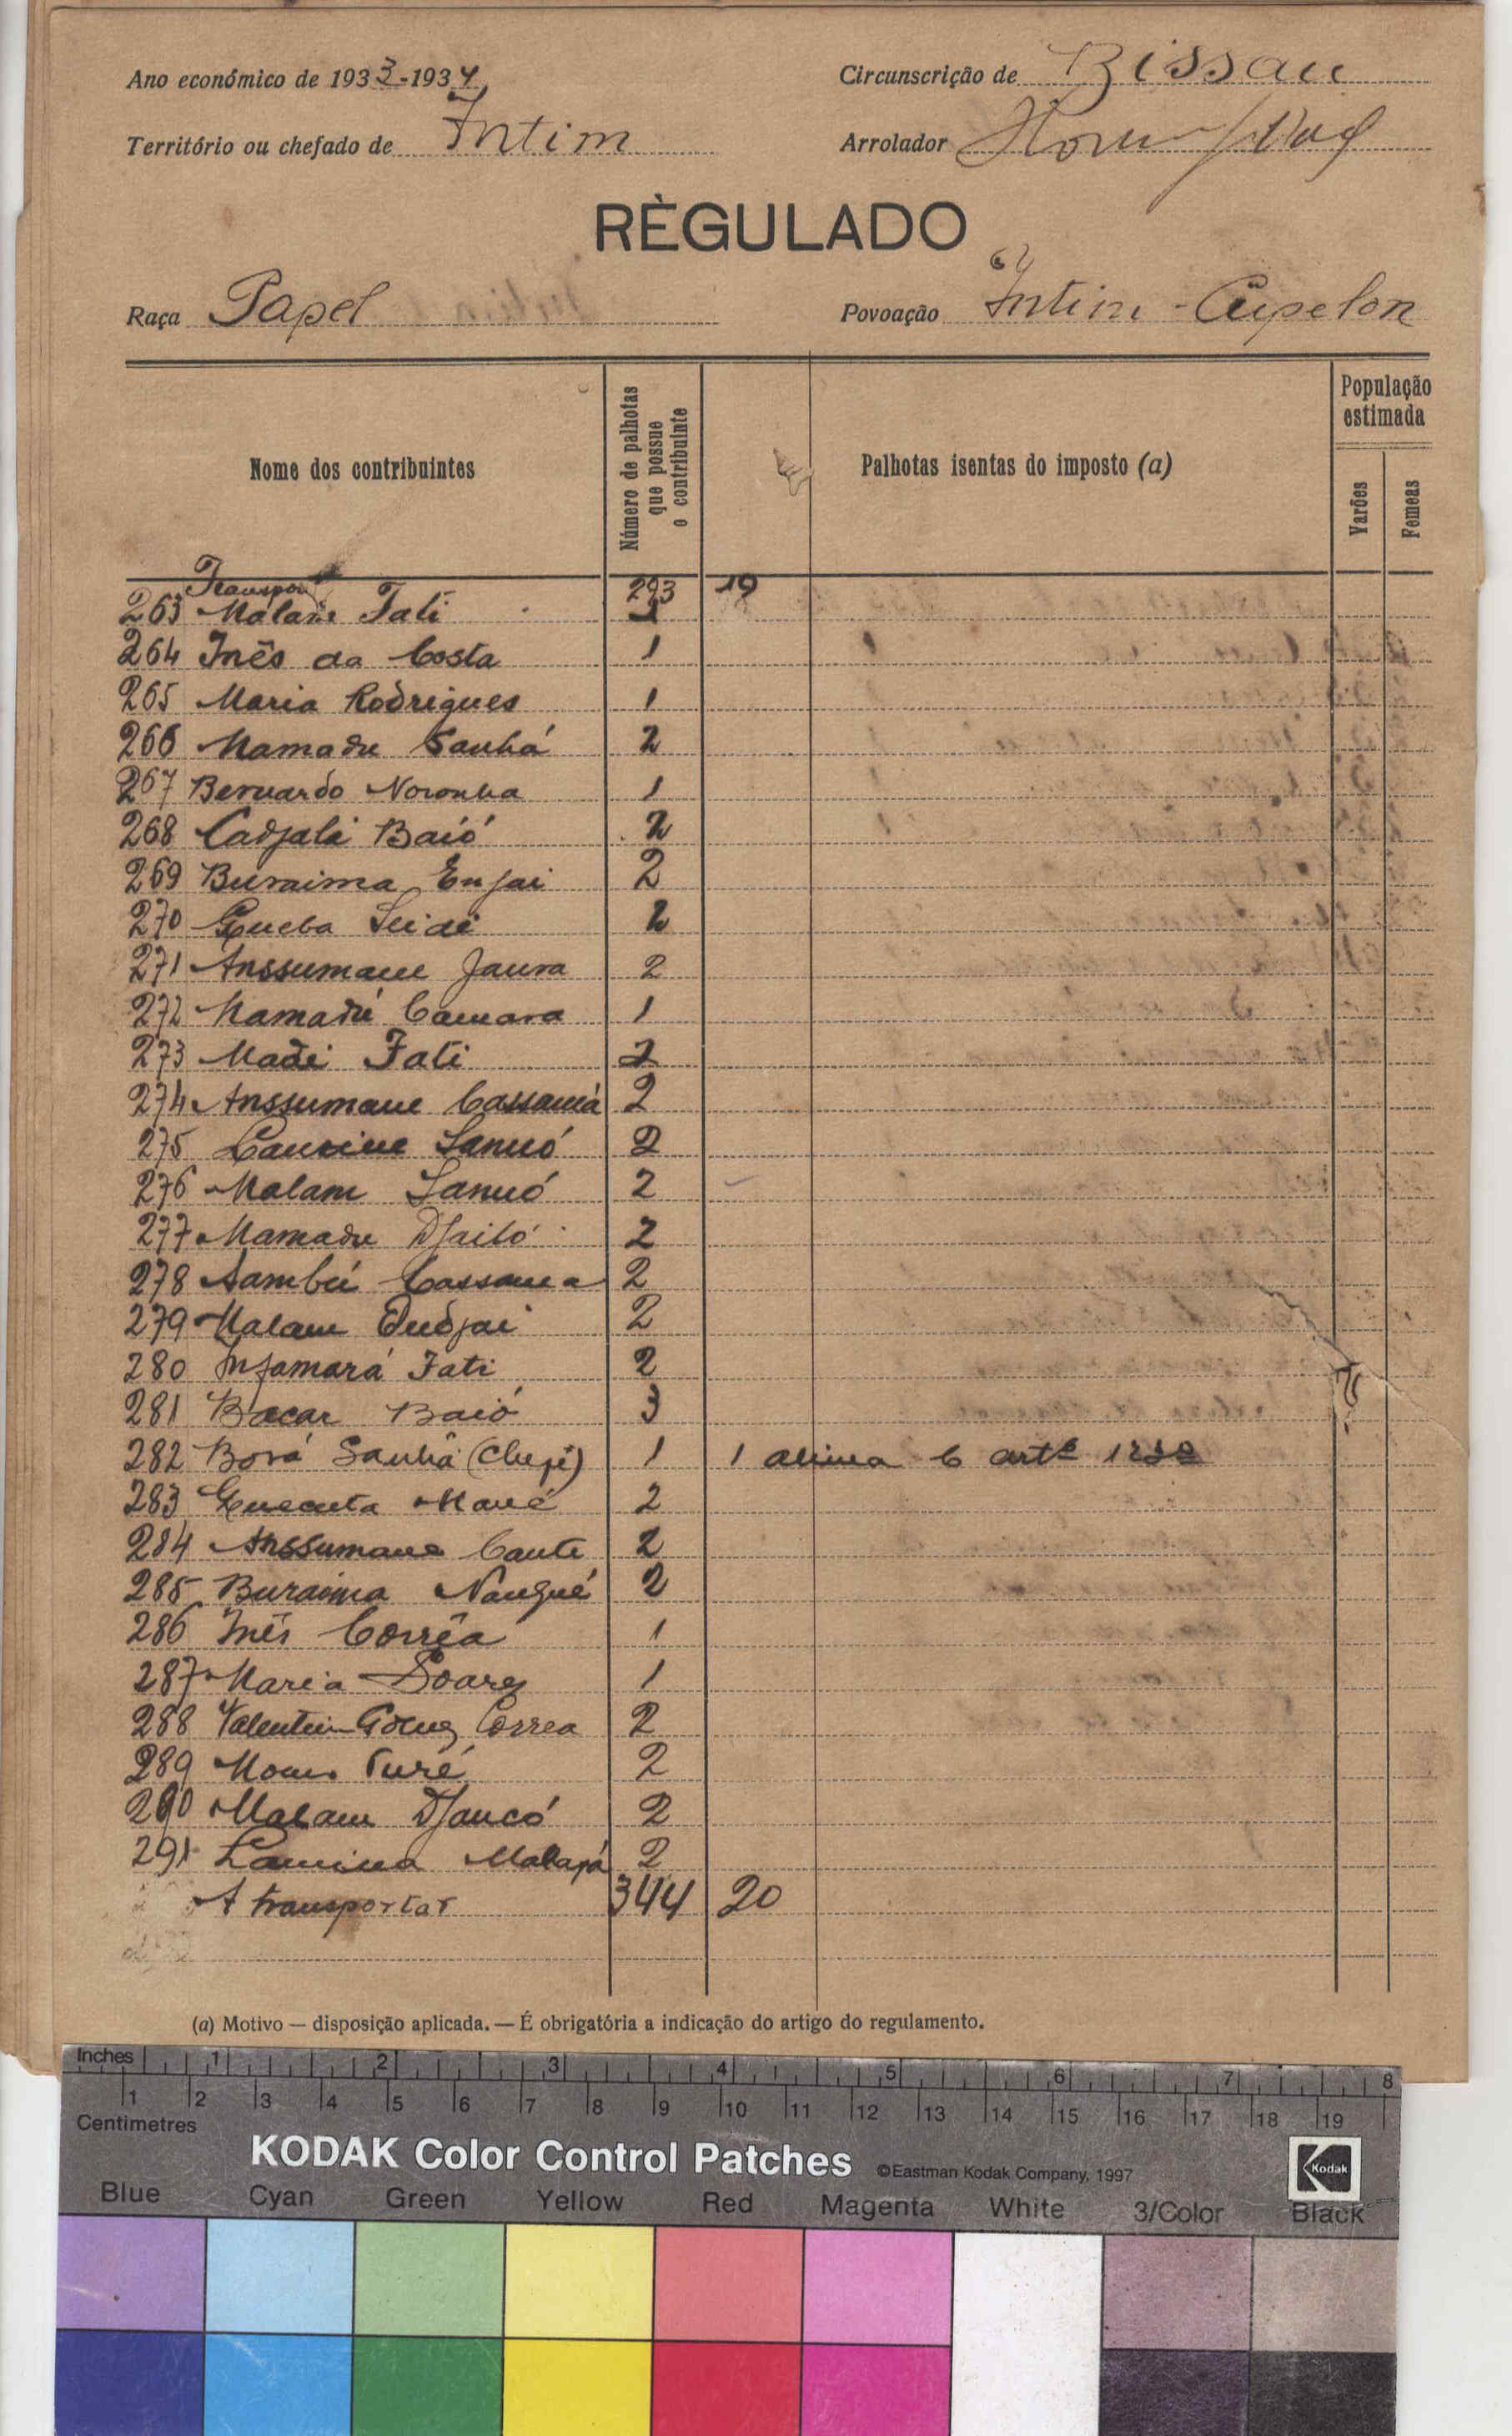 Ano económico de 1933-1934 Circunscrição de Bissau
Território ou chefado de Intim Arrolador
RÈGULADO
64
Raça Papel Povoação Intim - Cupelon
Nome dos contribuintes
Número de palhotas que possue o contribuinte
Palhotas isentas do imposto (a)
População estimada
Varões
Femeas
Transporte 293 19
263 Malam Fati 1
264 Inês da Costa 1
265 Maria Rodrigues 1
266 Mamadu Sanhá 2
267 Bernardo Noronha 1
268 Cadjali Baió 2
269 Buraima Enjai 2
270 Queba Seidi 2
271 Anssumane Jaura 2
272 Mamadú Camara 1
273 Madi Fati 2
274 Anssumane Cassamá 2
275 Lancine Sanuó 2
276 Malam Sanuó 2
277 Mamadu Djaló 2
278 Sambú Cassama 2
279 Malam Indjai 2
280 Infamará Fati 2
281 Bacar Baió 3
282 Borá Sanhá (Chefe) 1 1 alinea b artº
283 Quecuta Mané 2
284 Anssumane Cante 2
285 Buraima Nanqué 2
286 Inês Corrêa 1
287 Maria Soares 1
288 Valentim Gomes Correa 2
289 Turé 2
290 Malam Djancó 2
291 Lamina 2
A transportar 344 20
(a) Motivo — disposição aplicada. — É obrigatória a indicação do artigo do regulamento.
Inches 1 2 3 4 5 6 7 8
1 2 3 4 5 6 7 8 9 10 11 12 13 14 15 16 17 18 19
Centimetres
KODAK Color Control Patches ©Eastman Kodak Company, 1997 Kodak
Blue Cyan Green Yellow Red Magenta White 3/Color Black